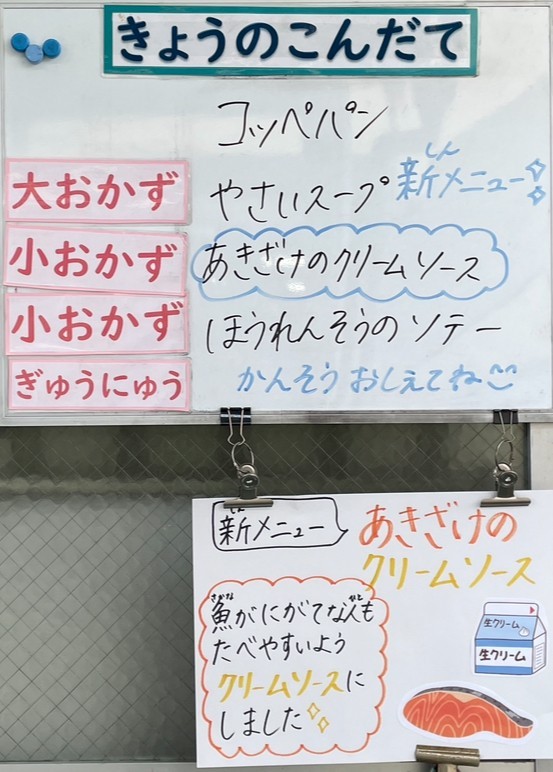 きょうのこんだて
コッペパン
大おかず やさいスープ
しん
新メニュー
小おかず あきざけのクリームソース
小おかず ほうれんそうのソテー
ぎゅうにゅう かんそう おしえてね
しん
新メニュー
あきざけの
クリームソース
さかな
魚がにがてな人も
たべやすいよう
クリームソースに
しました
生クリーム
生クリーム